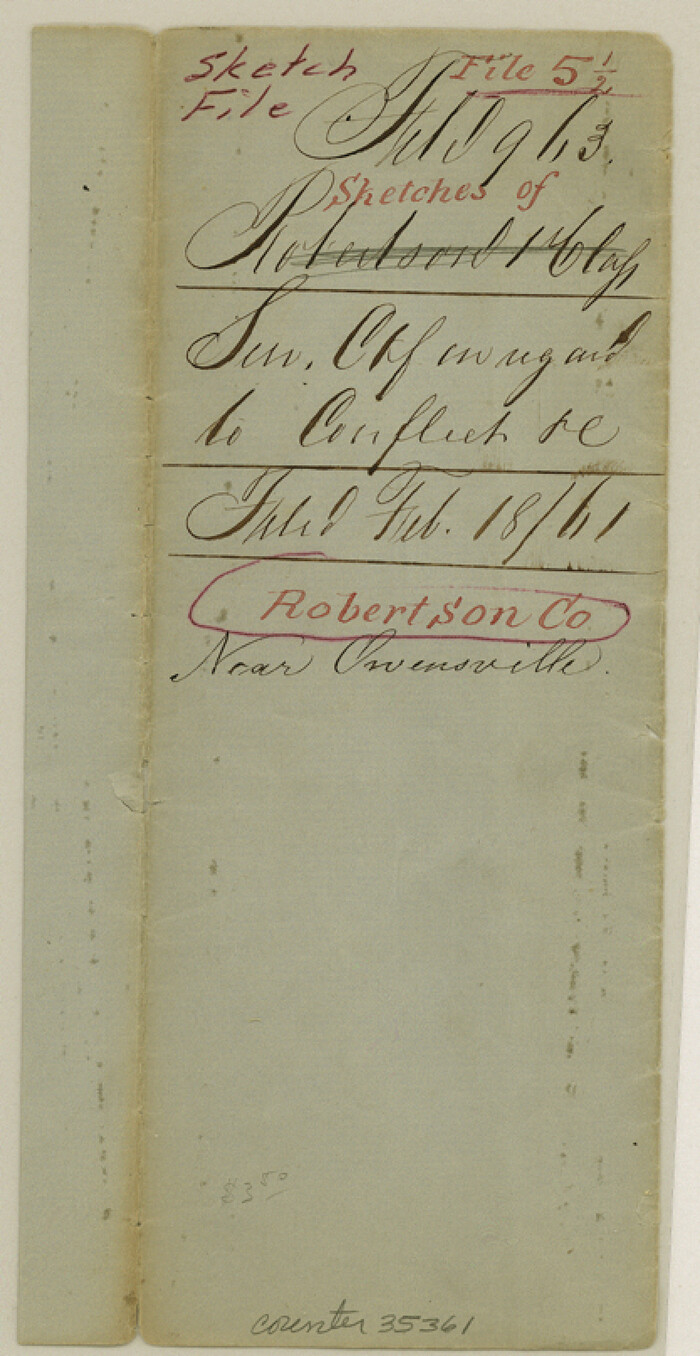 Sketch File
File 5 1/2
Fild 963.
Sketches of
Robertson 1st Class
Sur. Ctf in regard
to Conflict &c
Filed Feb. 18/61
Robertson Co
Near Owensville.
counter 35361